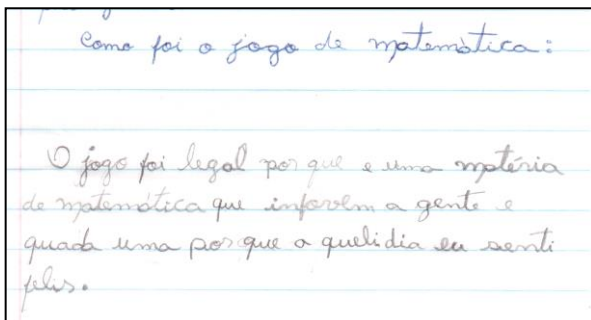 Como foi o jogo de matemática:
O jogo foi legal por que e uma matéria
de matemática que inforvem a gente e
quada uma por que a quelidia eu senti
felis.